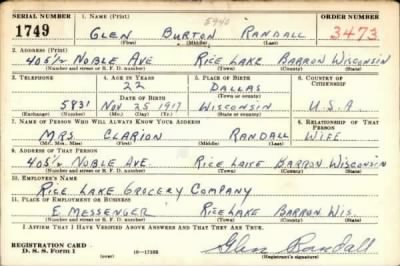 SERIAL NUMBER 1. NAME (Print) ORDER NUMBER
5940
1749 GLEN BURTON RANDALL 3473
(First) (Middle) (Last)
2. ADDRESS (Print)
405½ NOBLE AVE RICE LAKE BARRON WISCONSIN
(Number and street or R. F. D. number) (Town) (County) (State)
3. TELEPHONE 4. AGE IN YEARS 5. PLACE OF BIRTH 6. COUNTRY OF CITIZENSHIP
22 DALLAS
DATE OF BIRTH (Town or county)
5831 NOV 25 1917 WISCONSIN U.S.A
(Exchange) (Number) (Mo.) (Day) (Yr.) (State or country)
7. NAME OF PERSON WHO WILL ALWAYS KNOW YOUR ADDRESS 8. RELATIONSHIP OF THAT PERSON
MRS. CLARION RANDALL WIFE
(Mr., Mrs., Miss) (First) (Middle) (Last)
9. ADDRESS OF THAT PERSON
405½ NOBLE AVE. RICE LAKE BARRON WISCONSIN
(Number and street or R. F. D. number) (Town) (County) (State)
10. EMPLOYER'S NAME
RICE LAKE GROCERY COMPANY
11. PLACE OF EMPLOYMENT OR BUSINESS
E MESSENGER RICE LAKE BARRON WIS
(Number and street or R. F. D. number) (Town) (County) (State)
I AFFIRM THAT I HAVE VERIFIED ABOVE ANSWERS AND THAT THEY ARE TRUE.
REGISTRATION CARD
D. S. S. Form 1 (over) Glen Randall
(Registrant's signature)